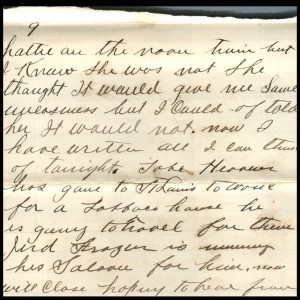 9
hattie on the noon train but
I Know She was not She
thought It would give me Some
uneasness but I Could of told
her It would not. now I
have written all I can think
of tonight. Jake
has gone to St Louis to work
for a Tobacco house he
is going to travel for them
Frazer is running
his Saloon for him, now
will Close hoping to hear from